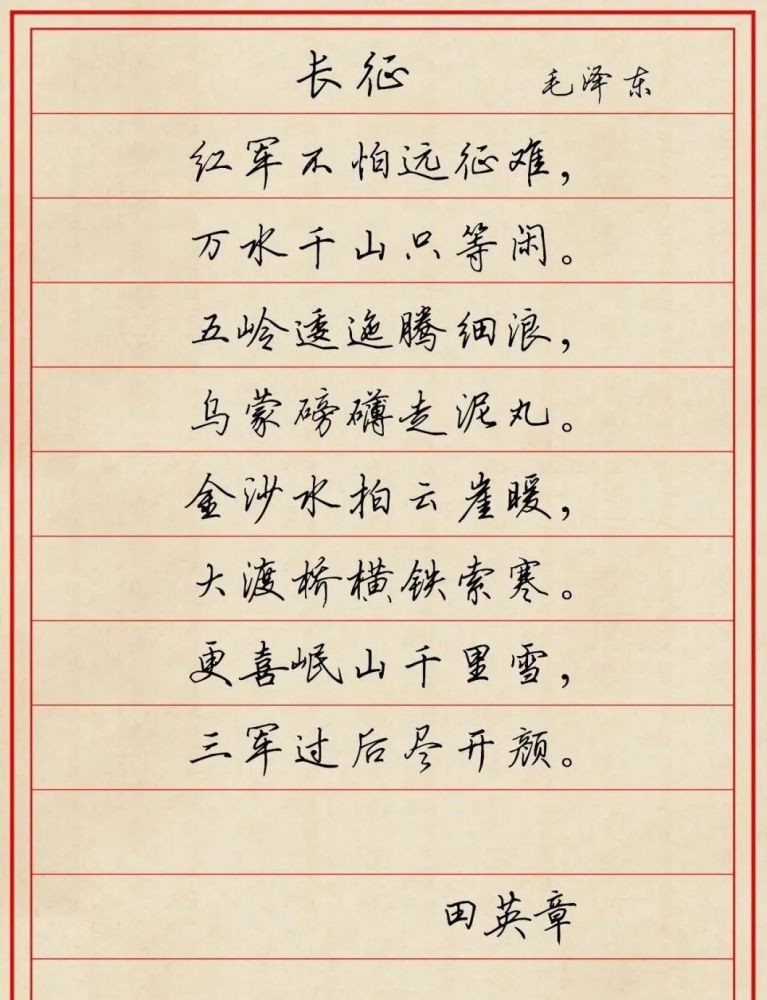 长征 毛泽东
红军不怕远征难，
万水千山只等闲。
五岭逶迤腾细浪，
乌蒙磅礴走泥丸。
金沙水拍云崖暖，
大渡桥横铁索寒。
更喜岷山千里雪，
三军过后尽开颜。
田英章